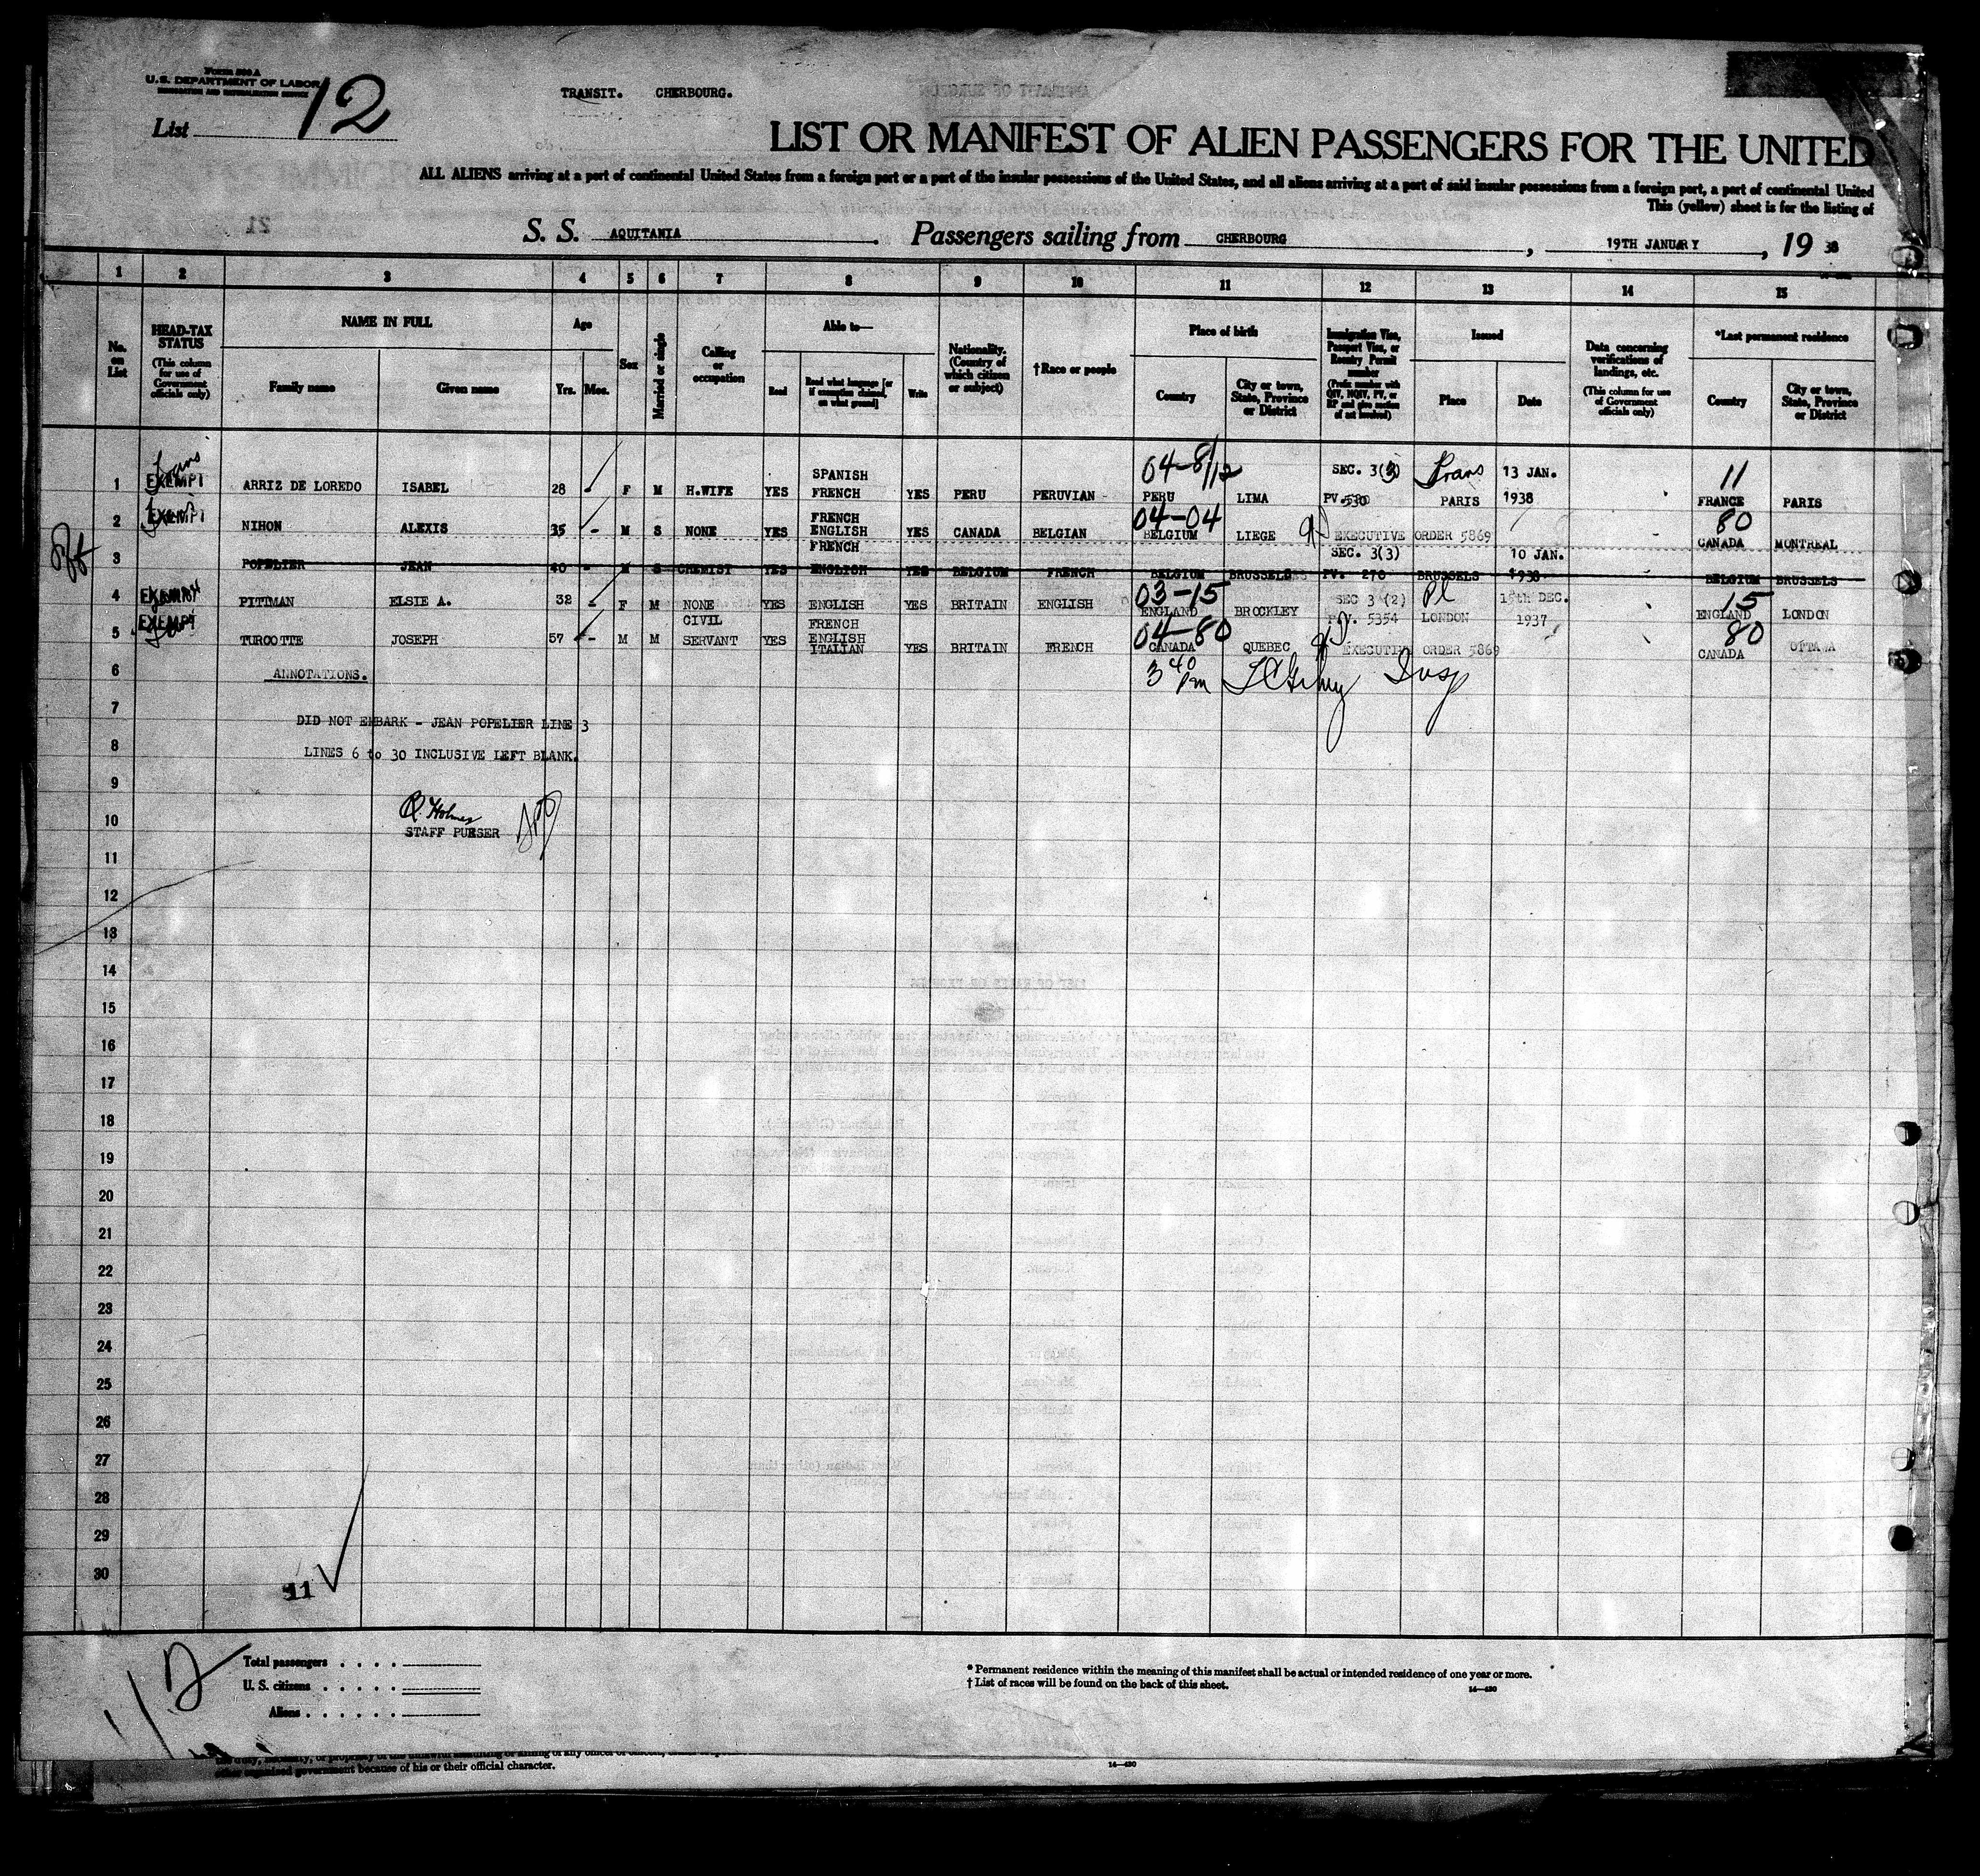 Form 500 A
U.S. DEPARTMENT OF LABOR
IMMIGRATION AND NATURALIZATION SERVICE
List 12
TRANSIT. CHERBOURG.
LIST OR MANIFEST OF ALIEN PASSENGERS FOR THE UNITED
ALL ALIENS arriving at a port of continental United States from a foreign port or a port of the insular possessions of the United States, and all aliens arriving at a port of said insular possessions from a foreign port, a port of continental United
This (yellow) sheet is for the listing of
S. S. AQUITANIA. Passengers sailing from CHERBOURG, 19TH JANUARY, 19 38
1 2 3 4 5 6 7 8 9 10 11 12 13 14 15
No. on List
HEAD-TAX STATUS (This column for use of Government officials only)
NAME IN FULL
Family name
Given name
Age
Yrs. Mos.
Sex
Married or single
Calling or occupation
Able to—
Read
Read what language [or if exemption claimed, on what ground]
Write
Nationality. (Country of which citizen or subject)
†Race or people
Place of birth
Country
City or town, State, Province or District
Immigration Visa, Passport Visa, or Reentry Permit number (Prefix number with QIV, NQIV, PV, or RP and give section of act involved)
Issued
Place
Date
Data concerning verifications of landings, etc. (This column for use of Government officials only)
*Last permanent residence
Country
City or town, State, Province or District
1 EXEMPT ARRIZ DE LOREDO ISABEL 28 - F M H.WIFE YES SPANISH FRENCH YES PERU PERUVIAN 04-8/12 PERU LIMA SEC. 3(3) PV.530 Trans PARIS 13 JAN. 1938 11 FRANCE PARIS
2 EXEMPT NIHON ALEXIS 35 - M S NONE YES FRENCH ENGLISH YES CANADA BELGIAN 04-04 BELGIUM LIEGE EXECUTIVE ORDER 5869 80 CANADA MONTREAL
3 POPELIER JEAN 40 - M S CHEMIST YES FRENCH ENGLISH YES BELGIUM FRENCH BELGIUM BRUSSELS SEC. 3(3) PV. 270 BRUSSELS 10 JAN. 1938 BELGIUM BRUSSELS
4 EXEMPT PITTMAN ELSIE A. 32 - F M NONE YES ENGLISH YES BRITAIN ENGLISH 03-15 ENGLAND BROCKLEY SEC 3 (2) P.V. 5354 Pl LONDON 15th DEC. 1937 15 ENGLAND LONDON
5 EXEMPT TURCOTTE JOSEPH 57 - M M CIVIL SERVANT YES FRENCH ENGLISH ITALIAN YES BRITAIN FRENCH 04-80 CANADA QUEBEC EXECUTIVE ORDER 5869 80 CANADA OTTAWA
6 ANNOTATIONS. 3 40 Pm Insp
7 DID NOT EMBARK - JEAN POPELIER LINE 3
8 LINES 6 to 30 INCLUSIVE LEFT BLANK.
9
10 Holmes
STAFF PURSER
11
12
13
14
15
16
17
18
19
20
21
22
23
24
25
26
27
28
29
30
11
Total passengers . . . .
U. S. citizens . . . . .
Aliens . . . . . .
* Permanent residence within the meaning of this manifest shall be actual or intended residence of one year or more.
† List of races will be found on the back of this sheet.
14—430
other organized government because of his or their official character.
14—430